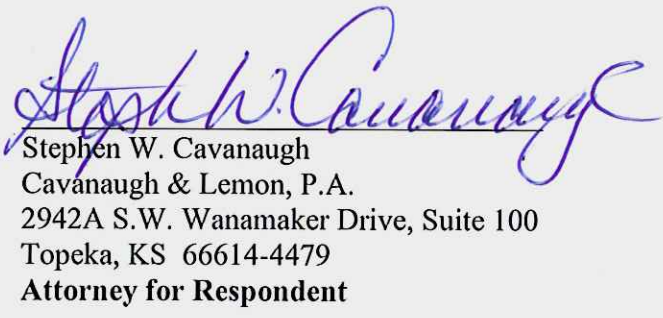 Stephen W. Cavanaugh
Stephen W. Cavanaugh
Cavanaugh & Lemon, P.A.
2942A S.W. Wanamaker Drive, Suite 100
Topeka, KS 66614-4479
Attorney for Respondent